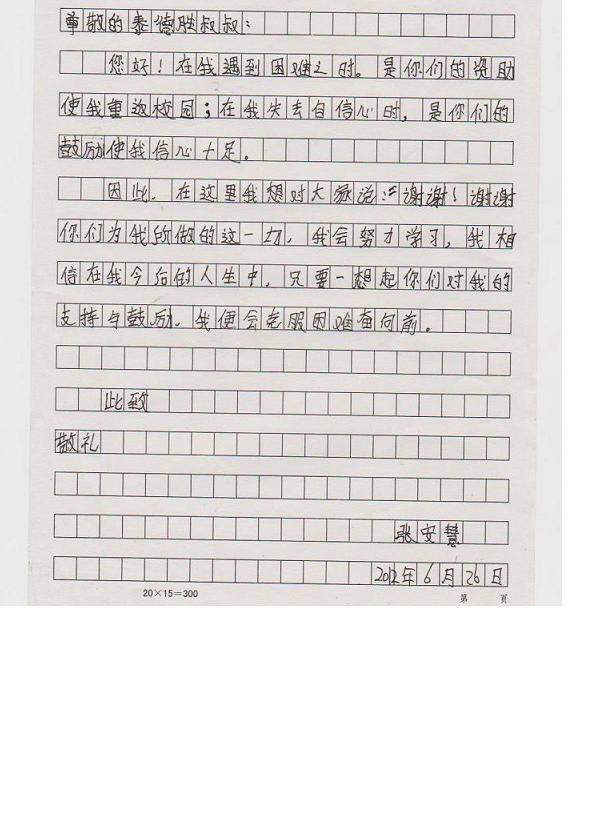 尊敬的泰德胜叔叔：
您好！在我遇到困难之时。是你们的资助
使我重返校园；在我失去自信心时，是你们的
鼓励使我信心十足。
因此，在这里我想对大家说：“谢谢！谢谢
你们为我所做的这一切，我会努力学习，我相
信在我今后的人生中，只要一想起你们对我的
支持与鼓励，我便会克服困难奋向前。
此致
敬礼
张安慧
2012年6月26日
20×15=300
第 页